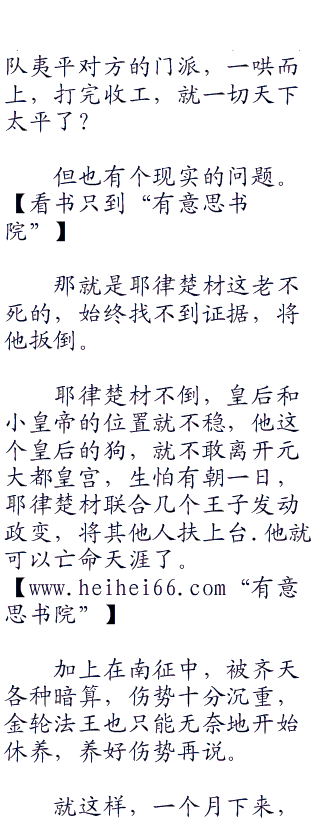 队夷平对方的门派，一哄而
上，打完收工，就一切天下
太平了？
但也有个现实的问题。
【看书只到“有意思书
院”】
那就是耶律楚材这老不
死的，始终找不到证据，将
他扳倒。
耶律楚材不倒，皇后和
小皇帝的位置就不稳，他这
个皇后的狗，就不敢离开元
大都皇宫，生怕有朝一日，
耶律楚材联合几个王子发动
政变，将其他人扶上台.他就
可以亡命天涯了。
【www.heihei66.com“有意
思书院”】
加上在南征中，被齐天
各种暗算，伤势十分沉重，
金轮法王也只能无奈地开始
休养，养好伤势再说。
就这样，一个月下来，